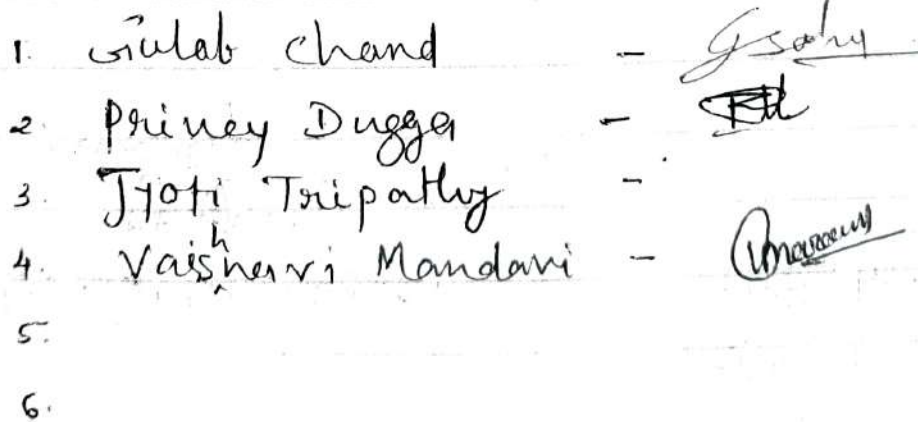 1. Gulab Chand - Gsahu
2. Princy Dugga -
3. Jyoti Tripathy -
4. Vaishnavi Mandavi -
5.
6.